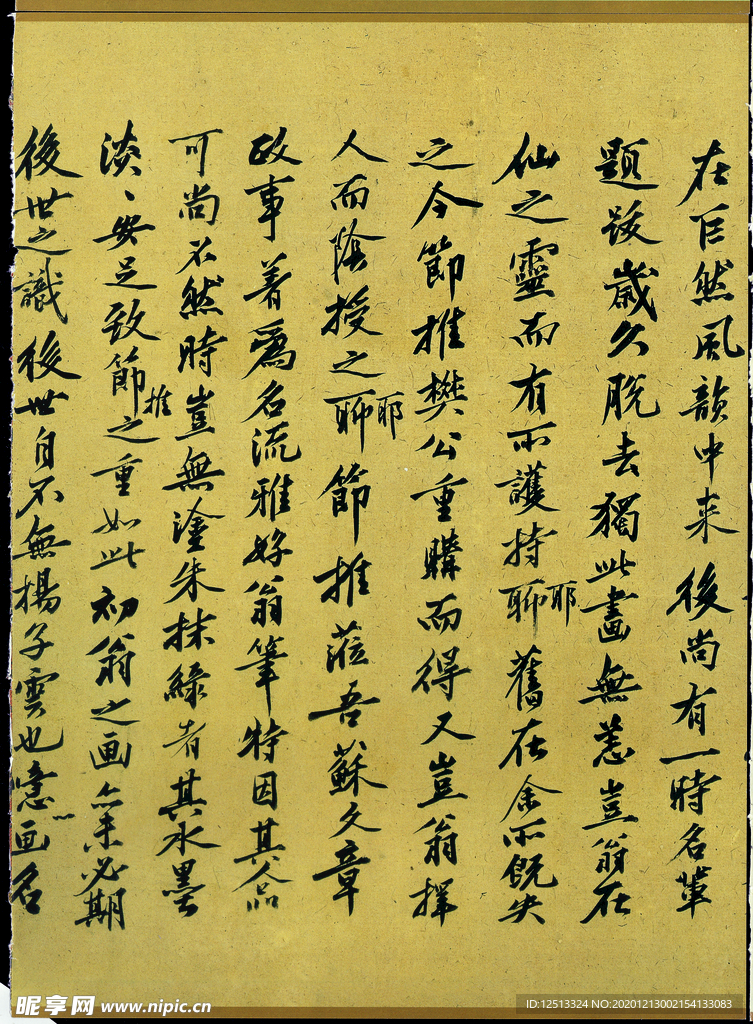 在巨然風韻中来後尚有一時名輩
題跋歲久脫去獨此畫無恙豈翁在
仙之靈而有所護持聊耶舊在余所既失
之今節推樊公重購而得又豈翁擇
人而陰授之聊耶節推蒞吾蘇文章
政事著爲名流雅好翁筆特因其人品
可尚不然時豈無塗朱抹綠者其水墨
淡、安足致節推之重如此初翁之画亦未必期
後世之識後世自不無揚子雲也噫画名
昵享网 www.nipic.cn
ID:12513324 NO:20201213002154133083